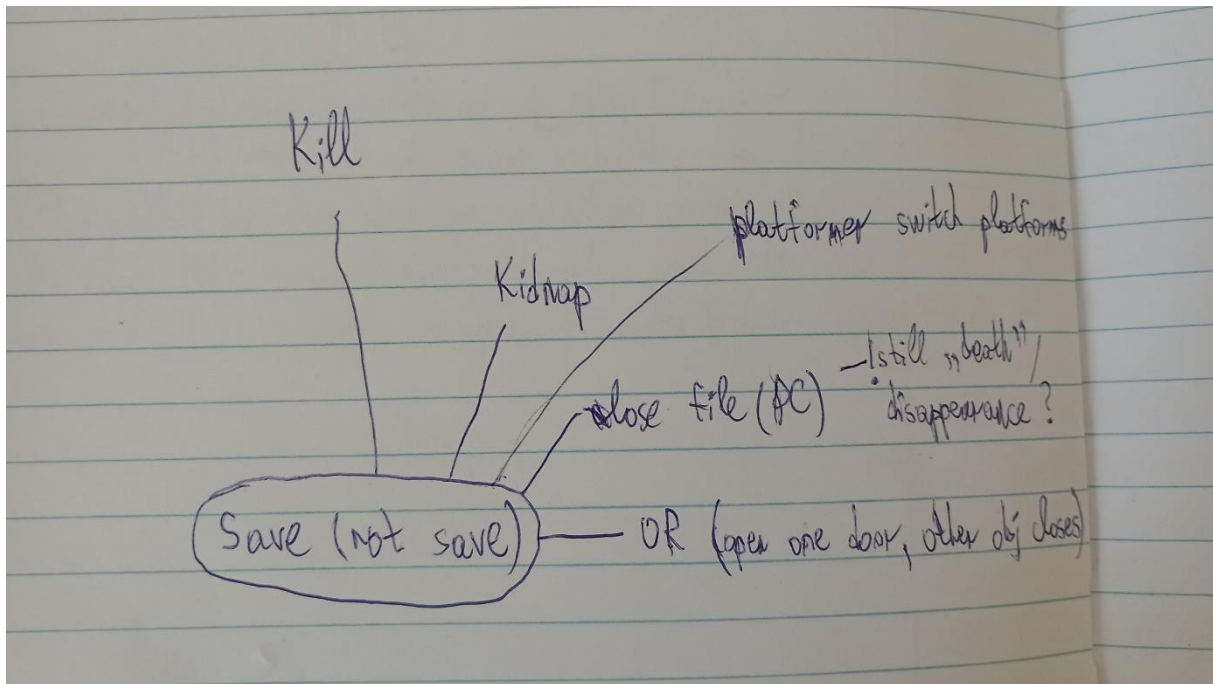 Kill
platformer switch platforms
Kidnap
close file (PC) – ! still „death" /
disappearance ?
Save (not save)
OR (open one door, other obj closes)